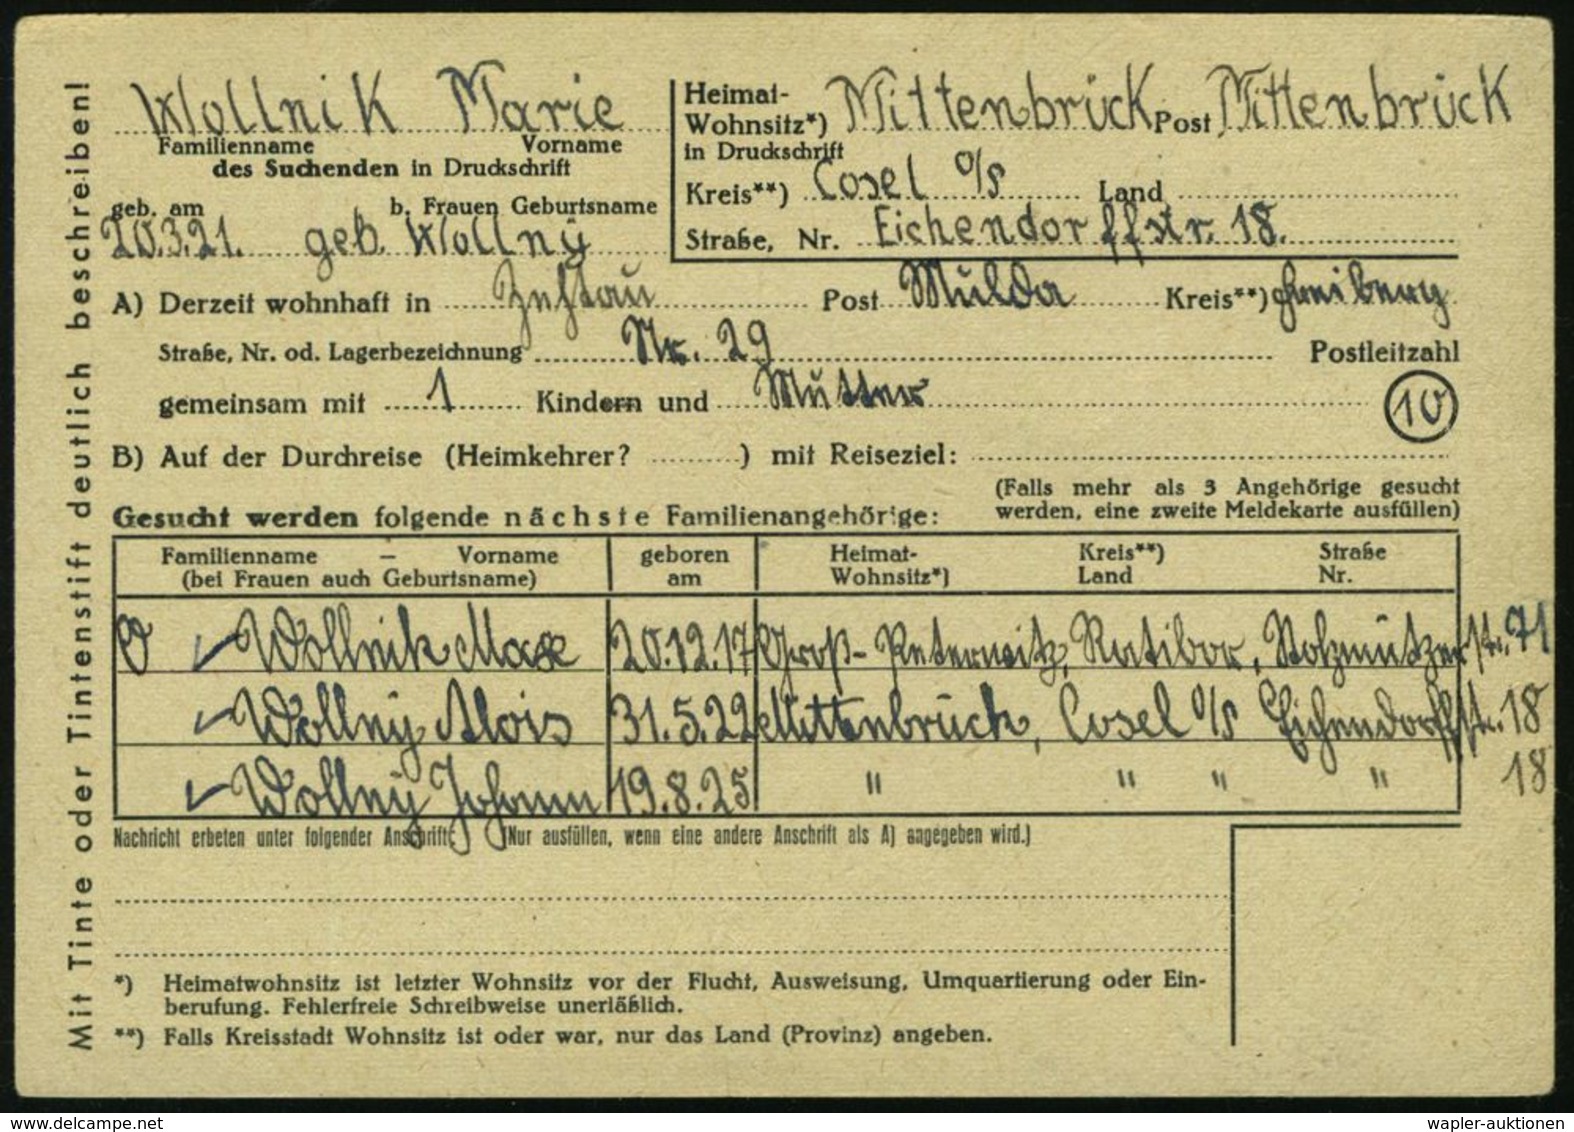 Mit Tinte oder Tintenstift deutlich beschreiben!
Wollnik Marie
Familienname Vorname
des Suchenden in Druckschrift
geb. am b. Frauen Geburtsname
20.3.21. geb. Wollny
Heimat-
Wohnsitz*) Mittenbrück Post Mittenbrück
in Druckschrift
Kreis**) Cosel O/S Land
Straße, Nr. Eichendorffstr. 18.
A) Derzeit wohnhaft in Zethau Post Mulda Kreis**) Freiberg
Straße, Nr. od. Lagerbezeichnung Nr. 29 Postleitzahl
gemeinsam mit 1 Kindern und Mutter 10
B) Auf der Durchreise (Heimkehrer? ) mit Reiseziel:
(Falls mehr als 3 Angehörige gesucht
werden, eine zweite Meldekarte ausfüllen)
Gesucht werden folgende nächste Familienangehörige:
Familienname – Vorname geboren Heimat- Kreis**) Straße
(bei Frauen auch Geburtsname) am Wohnsitz*) Land Nr.
Wollnik Max 20.12.17 Groß-Peterwitz, Ratibor, str. 71
Wollny Alois 31.5.22 Mittenbrück, Cosel O/S Eichendorffstr. 18
Wollny Johann 19.8.25 " " " " 18
Nachricht erbeten unter folgender Anschrift: (Nur ausfüllen, wenn eine andere Anschrift als A) angegeben wird.)
*) Heimatwohnsitz ist letzter Wohnsitz vor der Flucht, Ausweisung, Umquartierung oder Ein-
berufung. Fehlerfreie Schreibweise unerläßlich.
**) Falls Kreisstadt Wohnsitz ist oder war, nur das Land (Provinz) angeben.
wapler-auktionen